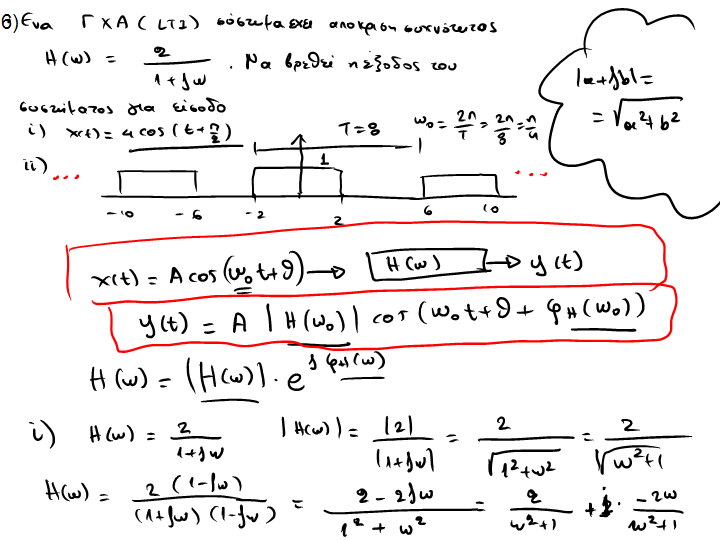 6) Ενα ΓΧΑ (LTI) σύστημα εχει αποκριση συχνότητας
H(ω) = 2/(1+jω) . Να βρεθεί η έξοδος του
συστήματος για είσοδο
i) x(t) = 4cos(t+π/2) T=8 ω₀ = 2π/T = 2π/8 = π/4
ii) ... 1 ...
-10 -6 -2 2 6 10
|a+jb| =
= √(a²+b²)
x(t) = A cos(ω₀t+θ) → H(ω) → y(t)
y(t) = A |H(ω₀)| cos(ω₀t+θ+φH(ω₀))
H(ω) = |H(ω)| · e^(jφH(ω))
i) H(ω) = 2/(1+jω) |H(ω)| = |2|/|1+jω| = 2/√(1²+ω²) = 2/√(ω²+1)
H(ω) = 2(1-jω)/((1+jω)(1-jω)) = (2-2jω)/(1²+ω²) = 2/(ω²+1) + j · -2ω/(ω²+1)